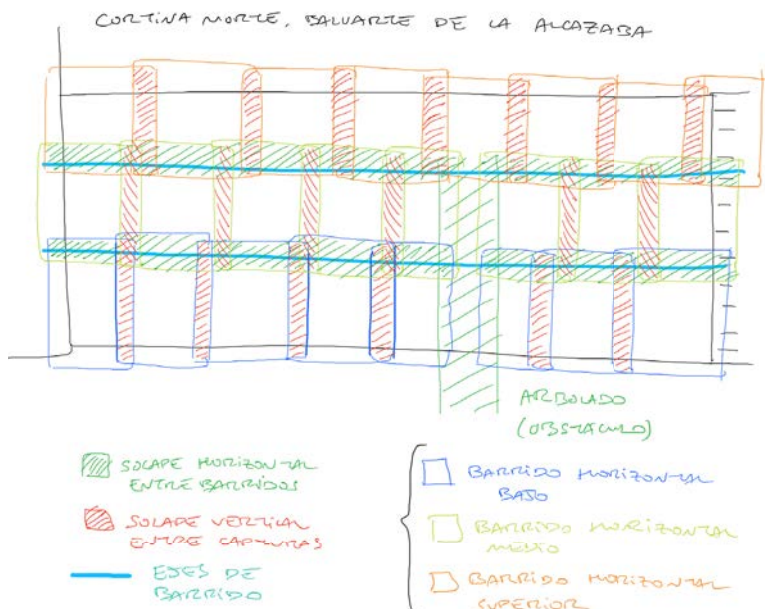 CORTINA NORTE, BALUARTE DE LA ALCAZABA
ARBOLADO
(OBSTÁCULO)
SOLAPE HORIZONTAL
ENTRE BARRIDOS
SOLAPE VERTICAL
ENTRE CAPTURAS
EJES DE
BARRIDO
BARRIDO HORIZONTAL
BAJO
BARRIDO HORIZONTAL
MEDIO
BARRIDO HORIZONTAL
SUPERIOR